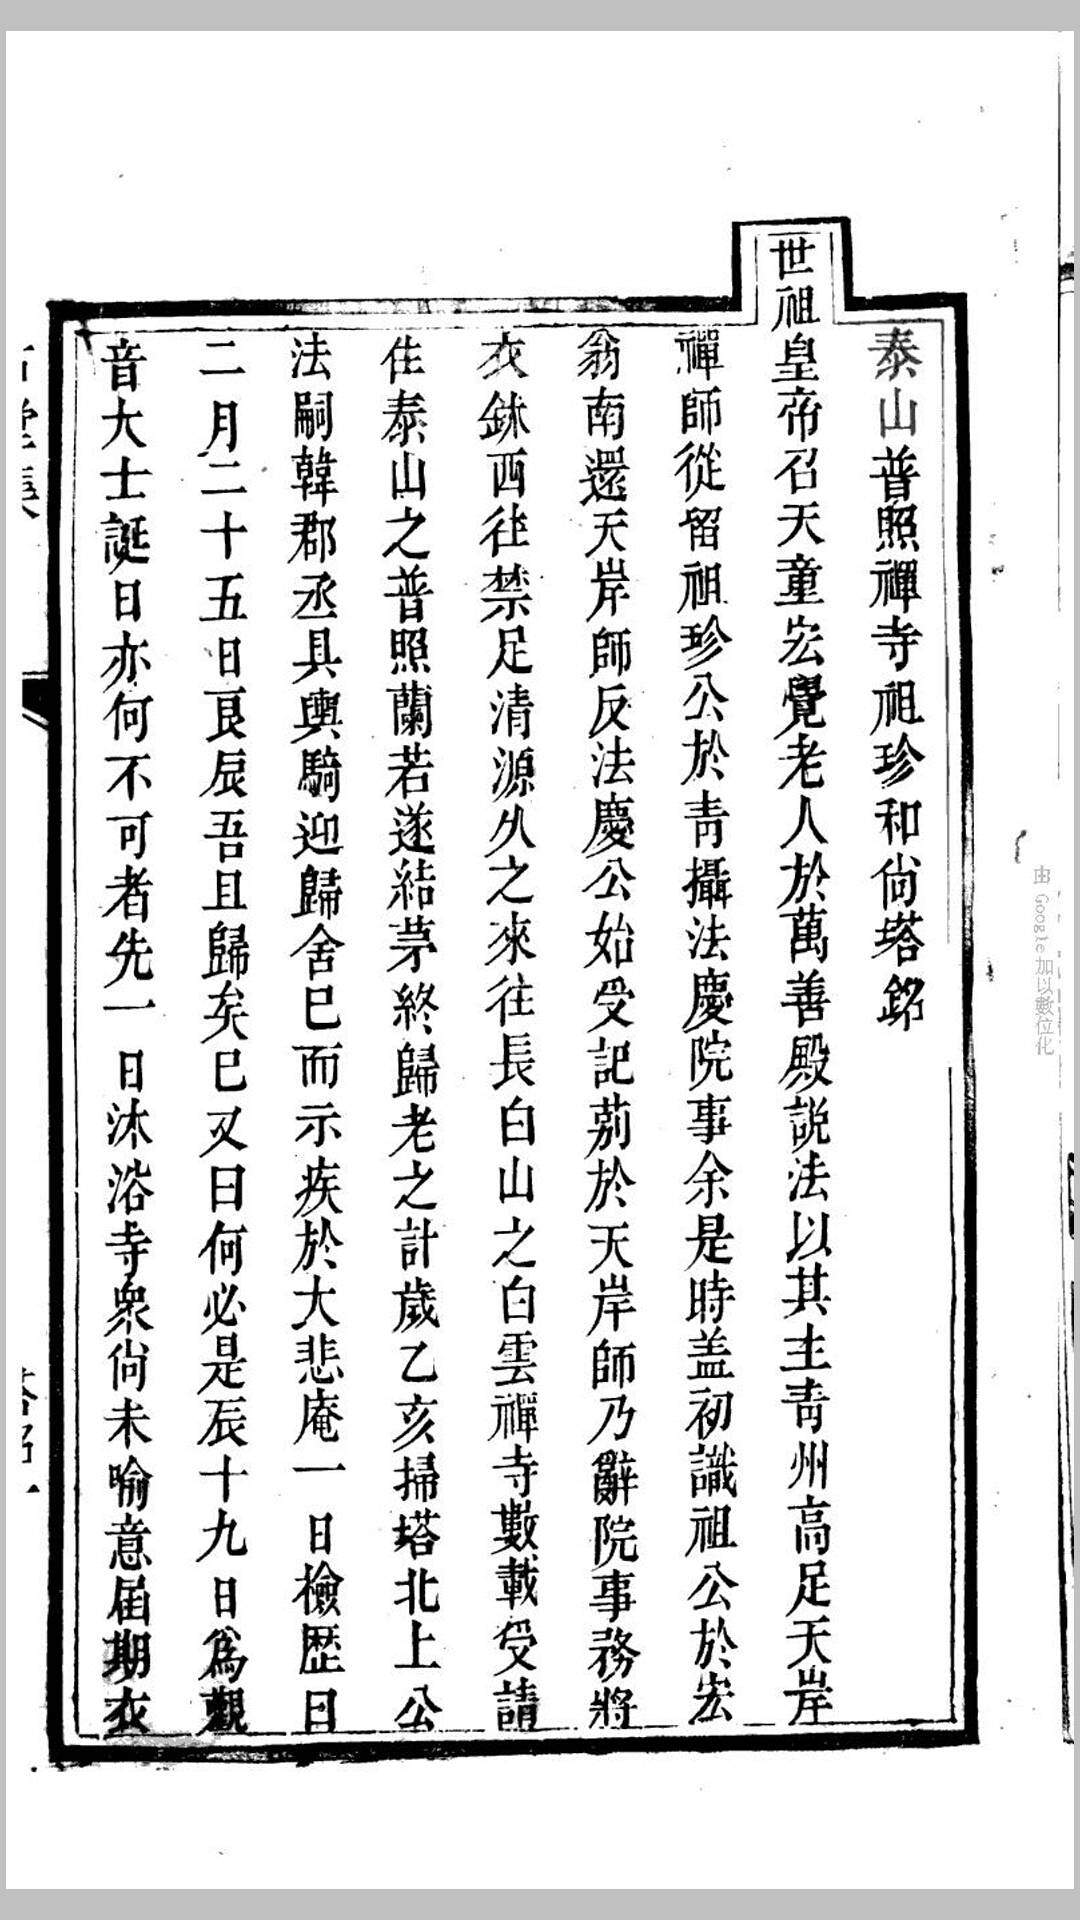 泰山普照禪寺祖珍和尚塔銘
世祖皇帝召天童宏覺老人於萬善殿説法以其主青州高足天岸
禪師從留祖珍公於青攝法慶院事余是時盖初識祖公於宏
翁南還天岸師反法慶公始受記莂於天岸師乃辭院事務將
衣鉢西徃禁足清源久之來往長白山之白雲禪寺數載受請
住泰山之普照蘭若遂結茅終歸老之計歲乙亥掃塔北上公
法嗣韓郡丞具輿騎迎歸舍巳而示疾於大悲庵一日檢歷日
二月二十五日良辰吾且歸矣巳又曰何必是辰十九日爲觀
音大士誕日亦何不可者先一日沐浴寺衆尚未喻意届期衣
塔銘一
由 Google 加以數位化